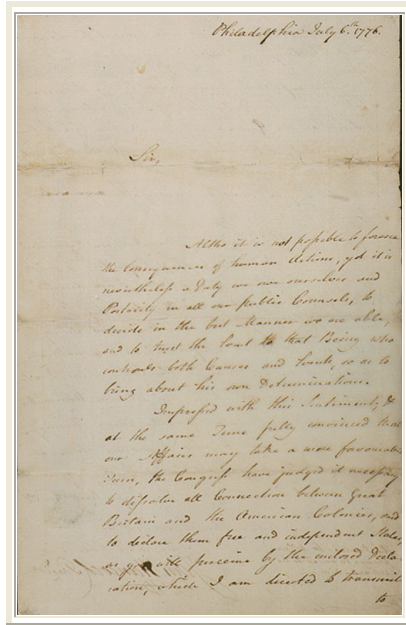 Philadelphia July 6th. 1776.
Sir,
Altho it is not possible to foresee
the Consequences of human Actions, yet it is
nevertheless a Duty we owe ourselves and
Posterity in all our public Counsels, to
decide in the best Manner we are able,
and to trust the Event to that Being who
controuls both Causes and Events, so as to
bring about his own Determinations.
Impressed with this Sentiment, &
at the same Time fully convinced that
our Affairs may take a more favourable
Turn, the Congress have judged it necessary
to dissolve all Connection between Great
Britain and the American Colonies, and
to declare them free and independent States,
as you will perceive by the enclosed Decla
ration, which I am directed to transmit
to